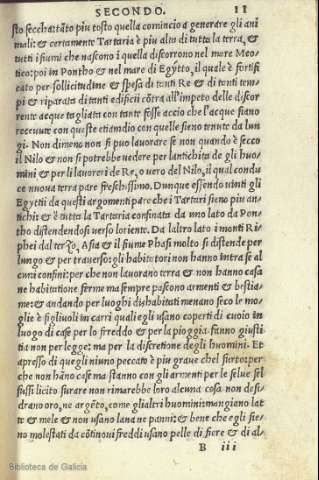 SECONDO. 11
sto secchattato piu tosto quella comincio a generare gli ani
mali: & certamente Tartaria è piu alto di tutta la terra, &
tutti i fiumi che nascono i quella discorrono nel mare Meo-
tico: poi in Pontho & nel mare di Egytto, il quale è fortifi
cato per sollicitudine & spesa di tanti Re & di tanti tem-
pi & riparato di tanti edificii cõtra all'impeto delle discor
rente acque tagliati con tante fosse accio che l'acque siano
receuute con queste etiandio con quelle sieno tenute da lun
gi. Non dimeno non si puo lauorare se non quando è secco
il Nilo & non si potrebbe uedere per lantichita de gli huo-
mini & per li lauoreri de Re, o uero del Nilo, il qual condu
ce nuoua terra pare freschissimo. Dunque essendo uinti gli
Egytti da questi argomenti pare che i Tartari sieno piu an-
tichi: & è tutta la Tartaria confinata da uno lato da Pon-
tho distendendosi uerso loriente. Da laltro lato i monti Ri-
phei dal terzo, Asia & il fiume Phasi molto si distende per
lungo & per trauerso: gli habitatori non hanno intra se al
cuni confini: per che non lauorano terra & non hanno casa
ne habitatione ferme ma sempre pasono armenti & bestia
me: & andando per luoghi dishabitati menano seco le mo-
glie è figliuoli in carri quali egli usano coperti di cuoio in
luogo di case per lo freddo & per la pioggia. fanno giusti
tia non per legge: ma per la discretione degli huomini. Et
apresso di quegli niuno peccato è piu graue chel furto: per
che non hãno case ma stanno con gli armenti per le selue sel
fussi licito furare non rimarebbe loro alcuna cosa. non desi-
drano oro, ne argẽto, come glialtri huomini: mangiano lat
te & mele & non usano lana ne panni: & bene che egli sie-
no molestati da cõtinoui freddi usano pelle di fiere & di al-
B iii
Biblioteca de Galicia